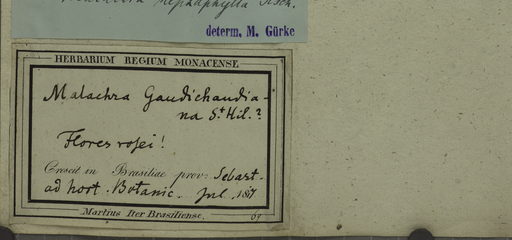 heptaphylla Fisch.
determ. M. Gürke
HERBARIUM REGIUM MONACENSE
Malachra Gaudichaudia-
na St Hil.?
Flores rosei!
Crescit in Brasiliae prov: Sebast.
ad hort. Botanic. Jul. 181
Martius Iter Brasiliense.